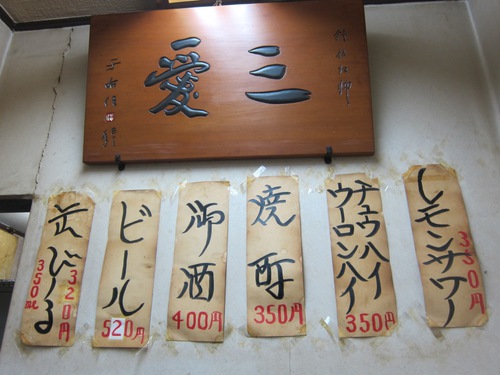 三愛
レモンサワー
330円
チュウハイ
ウーロンハイ
350円
焼酎
350円
御酒
400円
ビール
520円
缶びーる
350ml
320円